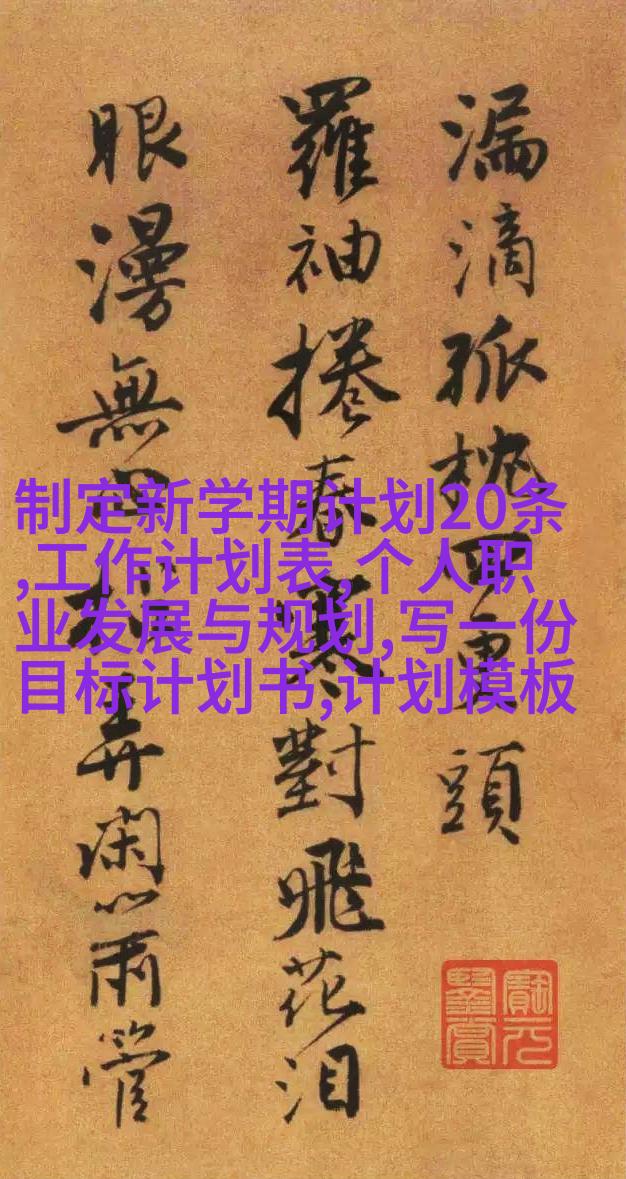 漏滴孤更頭
羅袖捲春寒對飛花泪
眼漫無弄閑心雨管
制定新学期计划20条
,工作计划表,个人职
业发展与规划,写一份
目标计划书,计划模板